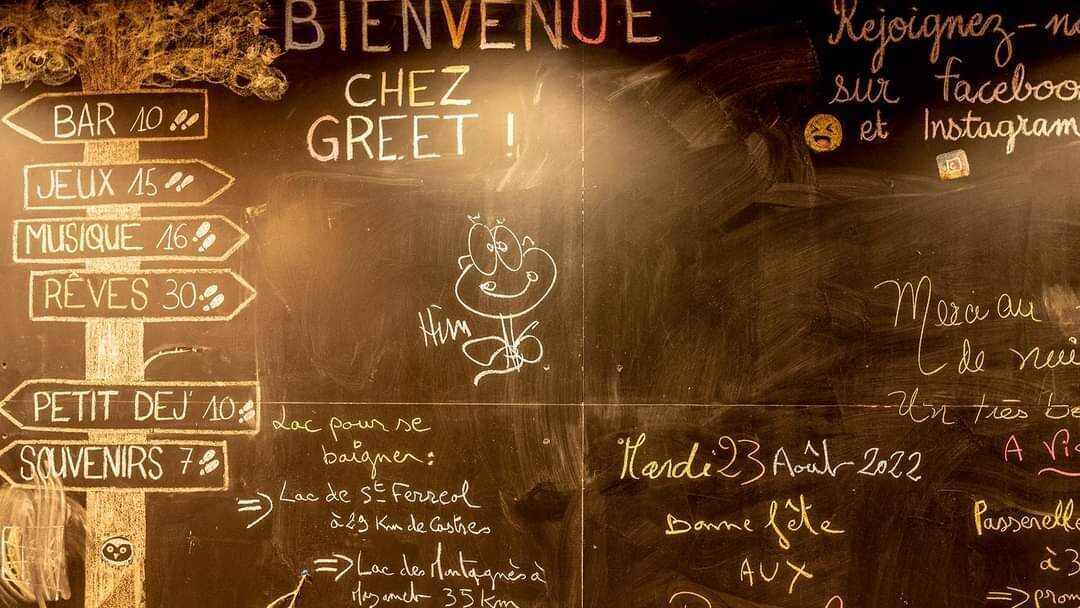 BIENVENUE
CHEZ
GREET !
Rejoignez-n
sur faceboo
et Instagram
BAR 10
JEUX 15
MUSIQUE 16
RÊVES 30
PETIT DEJ' 10
SOUVENIRS 7
Merci au
de nui
Un très be
Lac pour se
baigner:
=> Lac de St Ferreol
à 29 Km de Castres
=> Lac des Montagnès à
Mazamet 35 Km
Mardi 23 Août 2022
Bonne fête
AUX
A Vi
Passerelle
à 3
=> prom